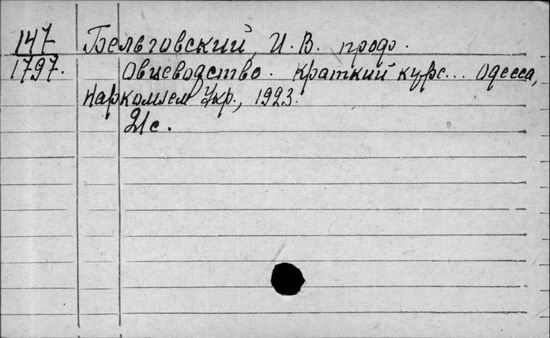 147 Бельговский, И. В. проф.
1797. Овцеводство. Краткий курс... Одесса,
Наркомзем Укр., 1923.
21с.